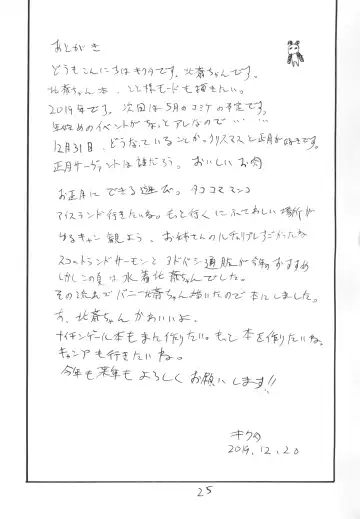 あとがき
どうもこんにちは キクタです。北斎ちゃんです。
北斎ちゃん本、とと様モードも描きたい。
2019年です。次回は5月のコミケの予定です。
年始めのイベントがちょっとアレなので・・・
12月31日、どうなっていることか。クリスマスと正月が好きです。
正月サーヴァントは誰だろう。おいしいお肉
お正月にできる遊び。タコ コマ
アイスランド行きたいね。もっと行くにふさわしい場所が
ゆるキャン 観よう、お姉さんの
スコットランドサーモンと 通販が今年のおすすめ
しかしこの夏は水着北斎ちゃんでした。
その流れでバニー北斎ちゃん描いたので本にしました。
す、北斎ちゃんかわいいよ。
ナイチンゲール本もまた作りたい。もっと本を作りたいね。
キューバも行きたいね。
今年も来年もよろしくお願いします!!
キクタ
2019.12.20
25